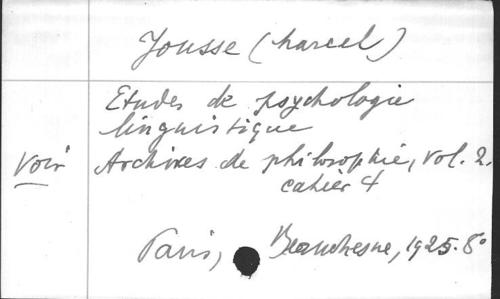 Jousse (Marcel)
Etudes de psychologie
linguistique
Voir Archives de philosophie, vol. 2,
cahier 4
Paris, Beauchesne, 1925. 8°